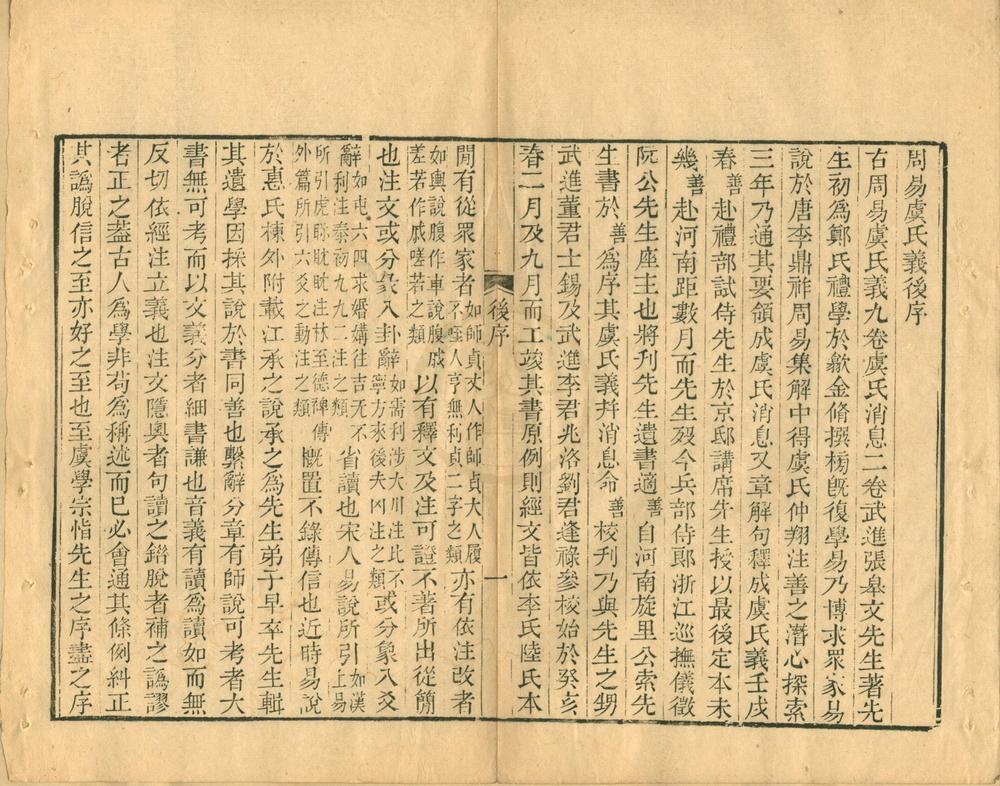 周易虞氏義後序
右周易虞氏義九卷虞氏消息二卷武進張皋文先生著先
生初爲鄭氏禮學於歙金脩撰榜旣復學易乃博求眾家易
說於唐李鼎祚周易集解中得虞氏仲翔注善之潛心探索
三年乃通其要領成虞氏消息又章解句釋成虞氏義壬戌
春善赴禮部試侍先生於京邸講席先生授以最後定本未
幾善赴河南距數月而先生歿今兵部侍郎浙江巡撫儀徵
阮公先生座主也將刊先生遺書適善自河南旋里公索先
生書於善爲序其虞氏義幷消息命善校刊乃與先生之甥
武進董君士錫及武進李君兆洛劉君逢祿參校始於癸亥
春二月及九月而工竣其書原例則經文皆依李氏陸氏本
後序
一
閒有從眾家者如師貞丈人作師貞大人履不咥人亨無利貞二字之類亦有依注改者
如輿說腹作車說腹戚差若作戚嗟若之類以有釋文及注可證不著所出從簡
也注文或分彖入卦辭如需利涉大川注比不寧方來後夫凶注之類或分象入爻
辭如屯六四求婚媾往吉无不利注泰初九九二注之類省讀也宋人易說所引如漢上易
所引虎眎眈眈注林至德稗傳外篇所引六爻之動注之類槪置不錄傳信也近時易說
於惠氏棟外附載江承之說承之爲先生弟子早卒先生輯
其遺學因採其說於書同善也繫辭分章有師說可考者大
書無可考而以文義分者細書謙也音義有讀爲讀如而無
反切依經注立義也注文隱奧者句讀之錯脫者補之譌謬
者正之葢古人爲學非苟爲稱述而已必會通其條例糾正
其譌脫信之至亦好之至也至虞學宗恉先生之序盡之序